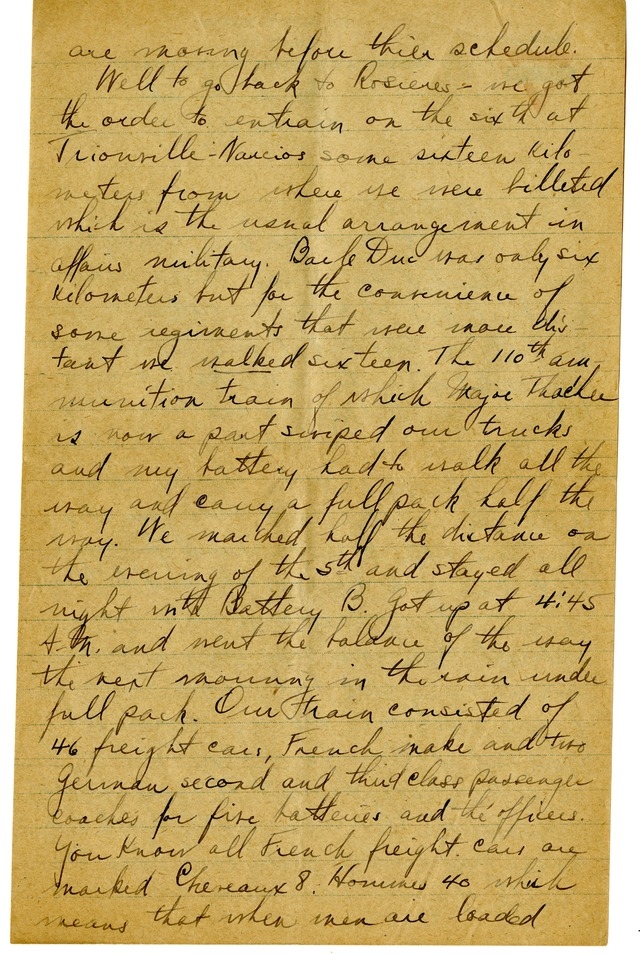 are moving before thier schedule.
Well to go back to Rosieres - we got
the order to entrain on the sixth at
Trionville-Narcios some sixteen Kilo-
meters from where we were billeted
which is the usual arrangement in
affairs military. Bar le Duc was only six
Kilometers but for the convenience of
some regiments that were more dis-
tant we walked sixteen. The 110th am-
munition train of which Major Thacher
is now a part swiped our trucks
and my battery had to walk all the
way and carry a full pack half the
way. We marched half the distance on
the evening of the 5th and stayed all
night with Battery B. Got up at 4:45
A.M. and went the balance of the way
the next morning in the rain under
full pack. Our train consisted of
46 freight cars, French make and two
German second and third class passenger
coaches for five batteries and the officers.
You Know all French freight cars are
marked Cheveaux 8. Hommes 40 which
means that when men are loaded